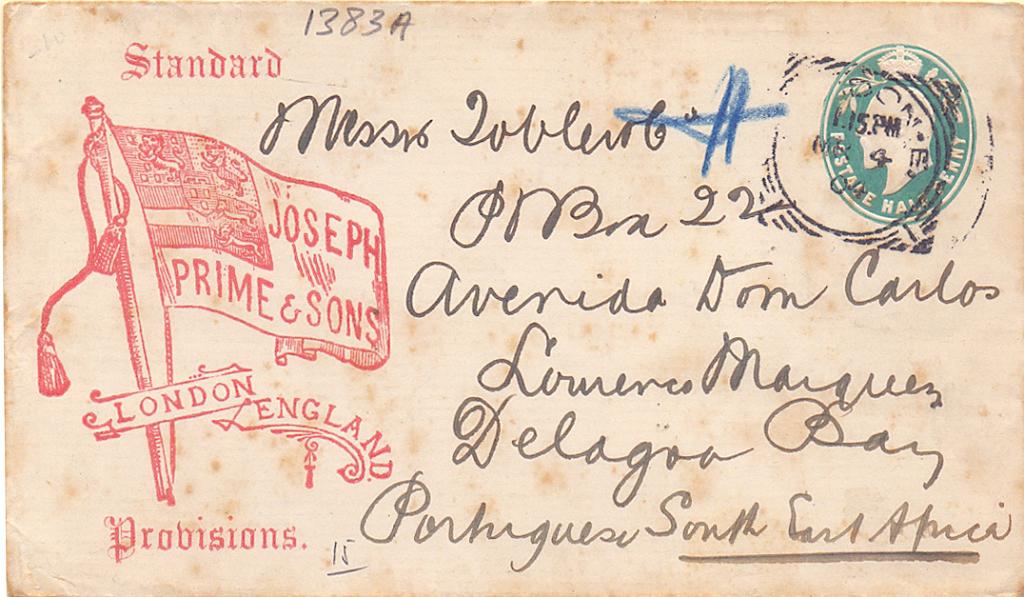 1383A
Standard
Messrs
JOSEPH
PRIME & SONS
LONDON
ENGLAND.
Provisions.
P O Box 22
Avenida Dom Carlos
Lourenco Marques
Delagoa Bay
Portuguese South East Africa
15
LONDON. E
1.15.PM
MR 4
04
POSTAGE HALFPENNY